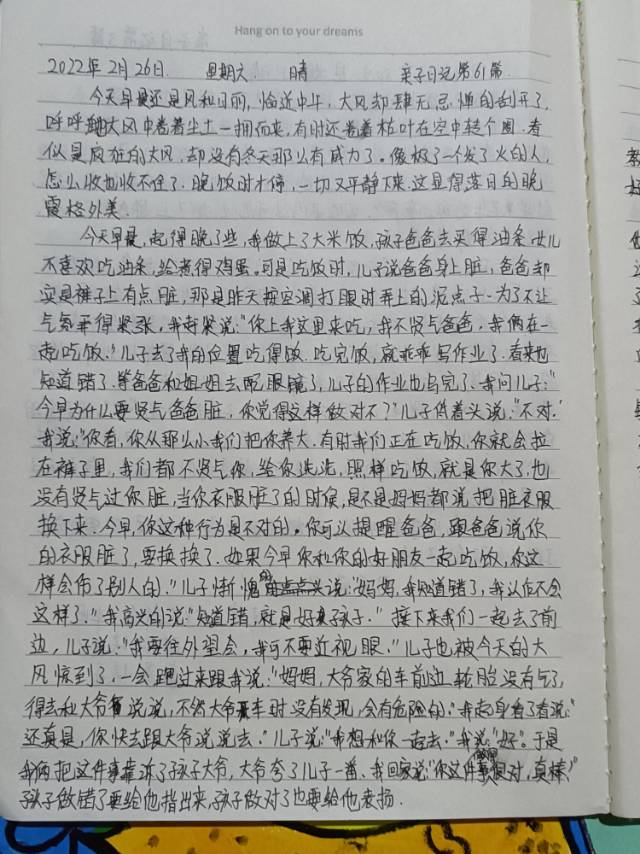 Hang on to your dreams
2022年2月26日 星期六 晴 亲子日记第61篇
今天早晨还是风和日丽，临近中午，大风却肆无忌惮的刮开了，
呼呼地大风中卷着尘土一拥而来，有时还卷着枯叶在空中转个圈．看
似是疯狂的大风，却没有冬天那么有威力了。像极了一个发了火的人，
怎么收也收不住了．晚饭时才停，一切又平静下来．这显得落日的晚
霞格外美．
今天早晨，起得晚了些，我做上了大米饭，孩子爸爸去买得油条．女儿
不喜欢吃油条，给煮得鸡蛋。可是吃饭时，儿子说爸爸身上脏，爸爸却
实是裤子上有点脏，那是昨天按空调打眼时弄上的泥点子．为了不让
气氛弄得紧张，我赶紧说："你上我这里来吃，我不贤气爸爸，我俩在一
起吃饭．"儿子去了我的位置吃得饭．吃完饭，就乖乖写作业了．看来也
知道错了．等爸爸和姐姐去配眼镜了，儿子的作业也写完了．我问儿子："
今早为什么要贤气爸爸脏，你觉得这样做对不？"儿子低着头说："不对．"
我说："你看，你从那么小我们把你养大．有时我们正在吃饭，你就会拉
在裤子里，我们都不贤气你，给你洗洗，照样吃饭，就是你大了，也
没有贤气过你脏，当你衣服脏了的时候，是不是妈妈都说把脏衣服
换下来．今早，你这种行为是不对的。你可以提醒爸爸，跟爸爸说你
的衣服脏了，要换换了．如果今早你和你的好朋友一起吃饭，你这
样会伤了别人的．"儿子惭愧的点点头说："妈妈，我知道错了，我认作不会
这样了．"我高兴的说："知道错，就是好孩子．"接下来我们一起去了前
边，儿子说："我要往外望会，我可不要近视眼．"儿子也被今天的大
风惊到了．一会跑过来跟我说："妈妈，大爷家的车前边轮胎没有气了，
得去和大爷说说，不然大爷开车时没有发现，会有危险的．"我起身看了看说："
还真是，你快去跟大爷说说去．"儿子说："我想和你一起去．"我说："好"。于是
我俩把这件事告诉了孩子大爷，大爷夸了儿子一番．我回家说："你这件事做得很对，真棒！"
孩子做错了要给他指出来，孩子做对了也要给他表扬．